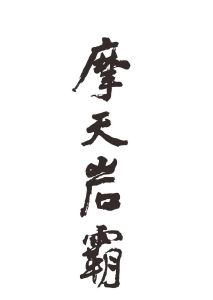 摩天岩霸